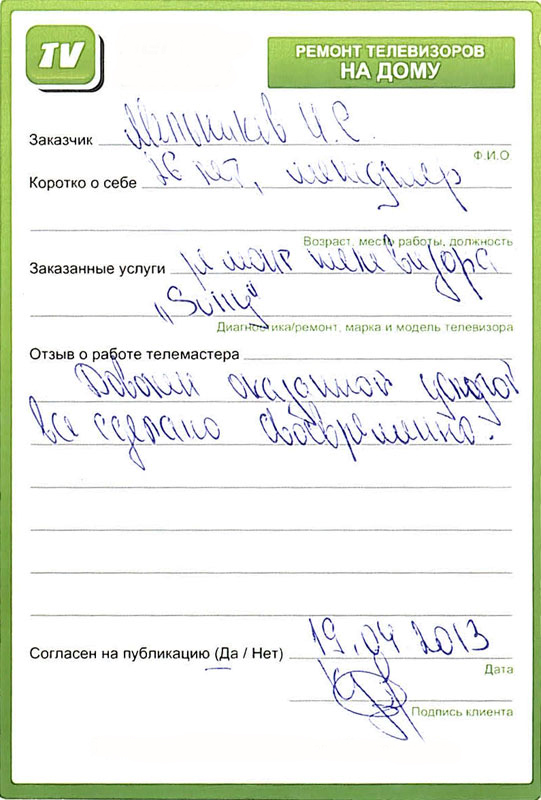 TV
РЕМОНТ ТЕЛЕВИЗОРОВ
НА ДОМУ
Заказчик Мельников И.С.
Ф.И.О
Коротко о себе 26 лет, менеджер
Возраст, место работы, должность
Заказанные услуги ремонт телевизора
"Sony"
Диагностика/ремонт, марка и модель телевизора
Отзыв о работе телемастера
Доволен оказанной услугой
все сделано своевременно.
Согласен на публикацию (Да / Нет) 19.04 2013
Дата
Подпись клиента